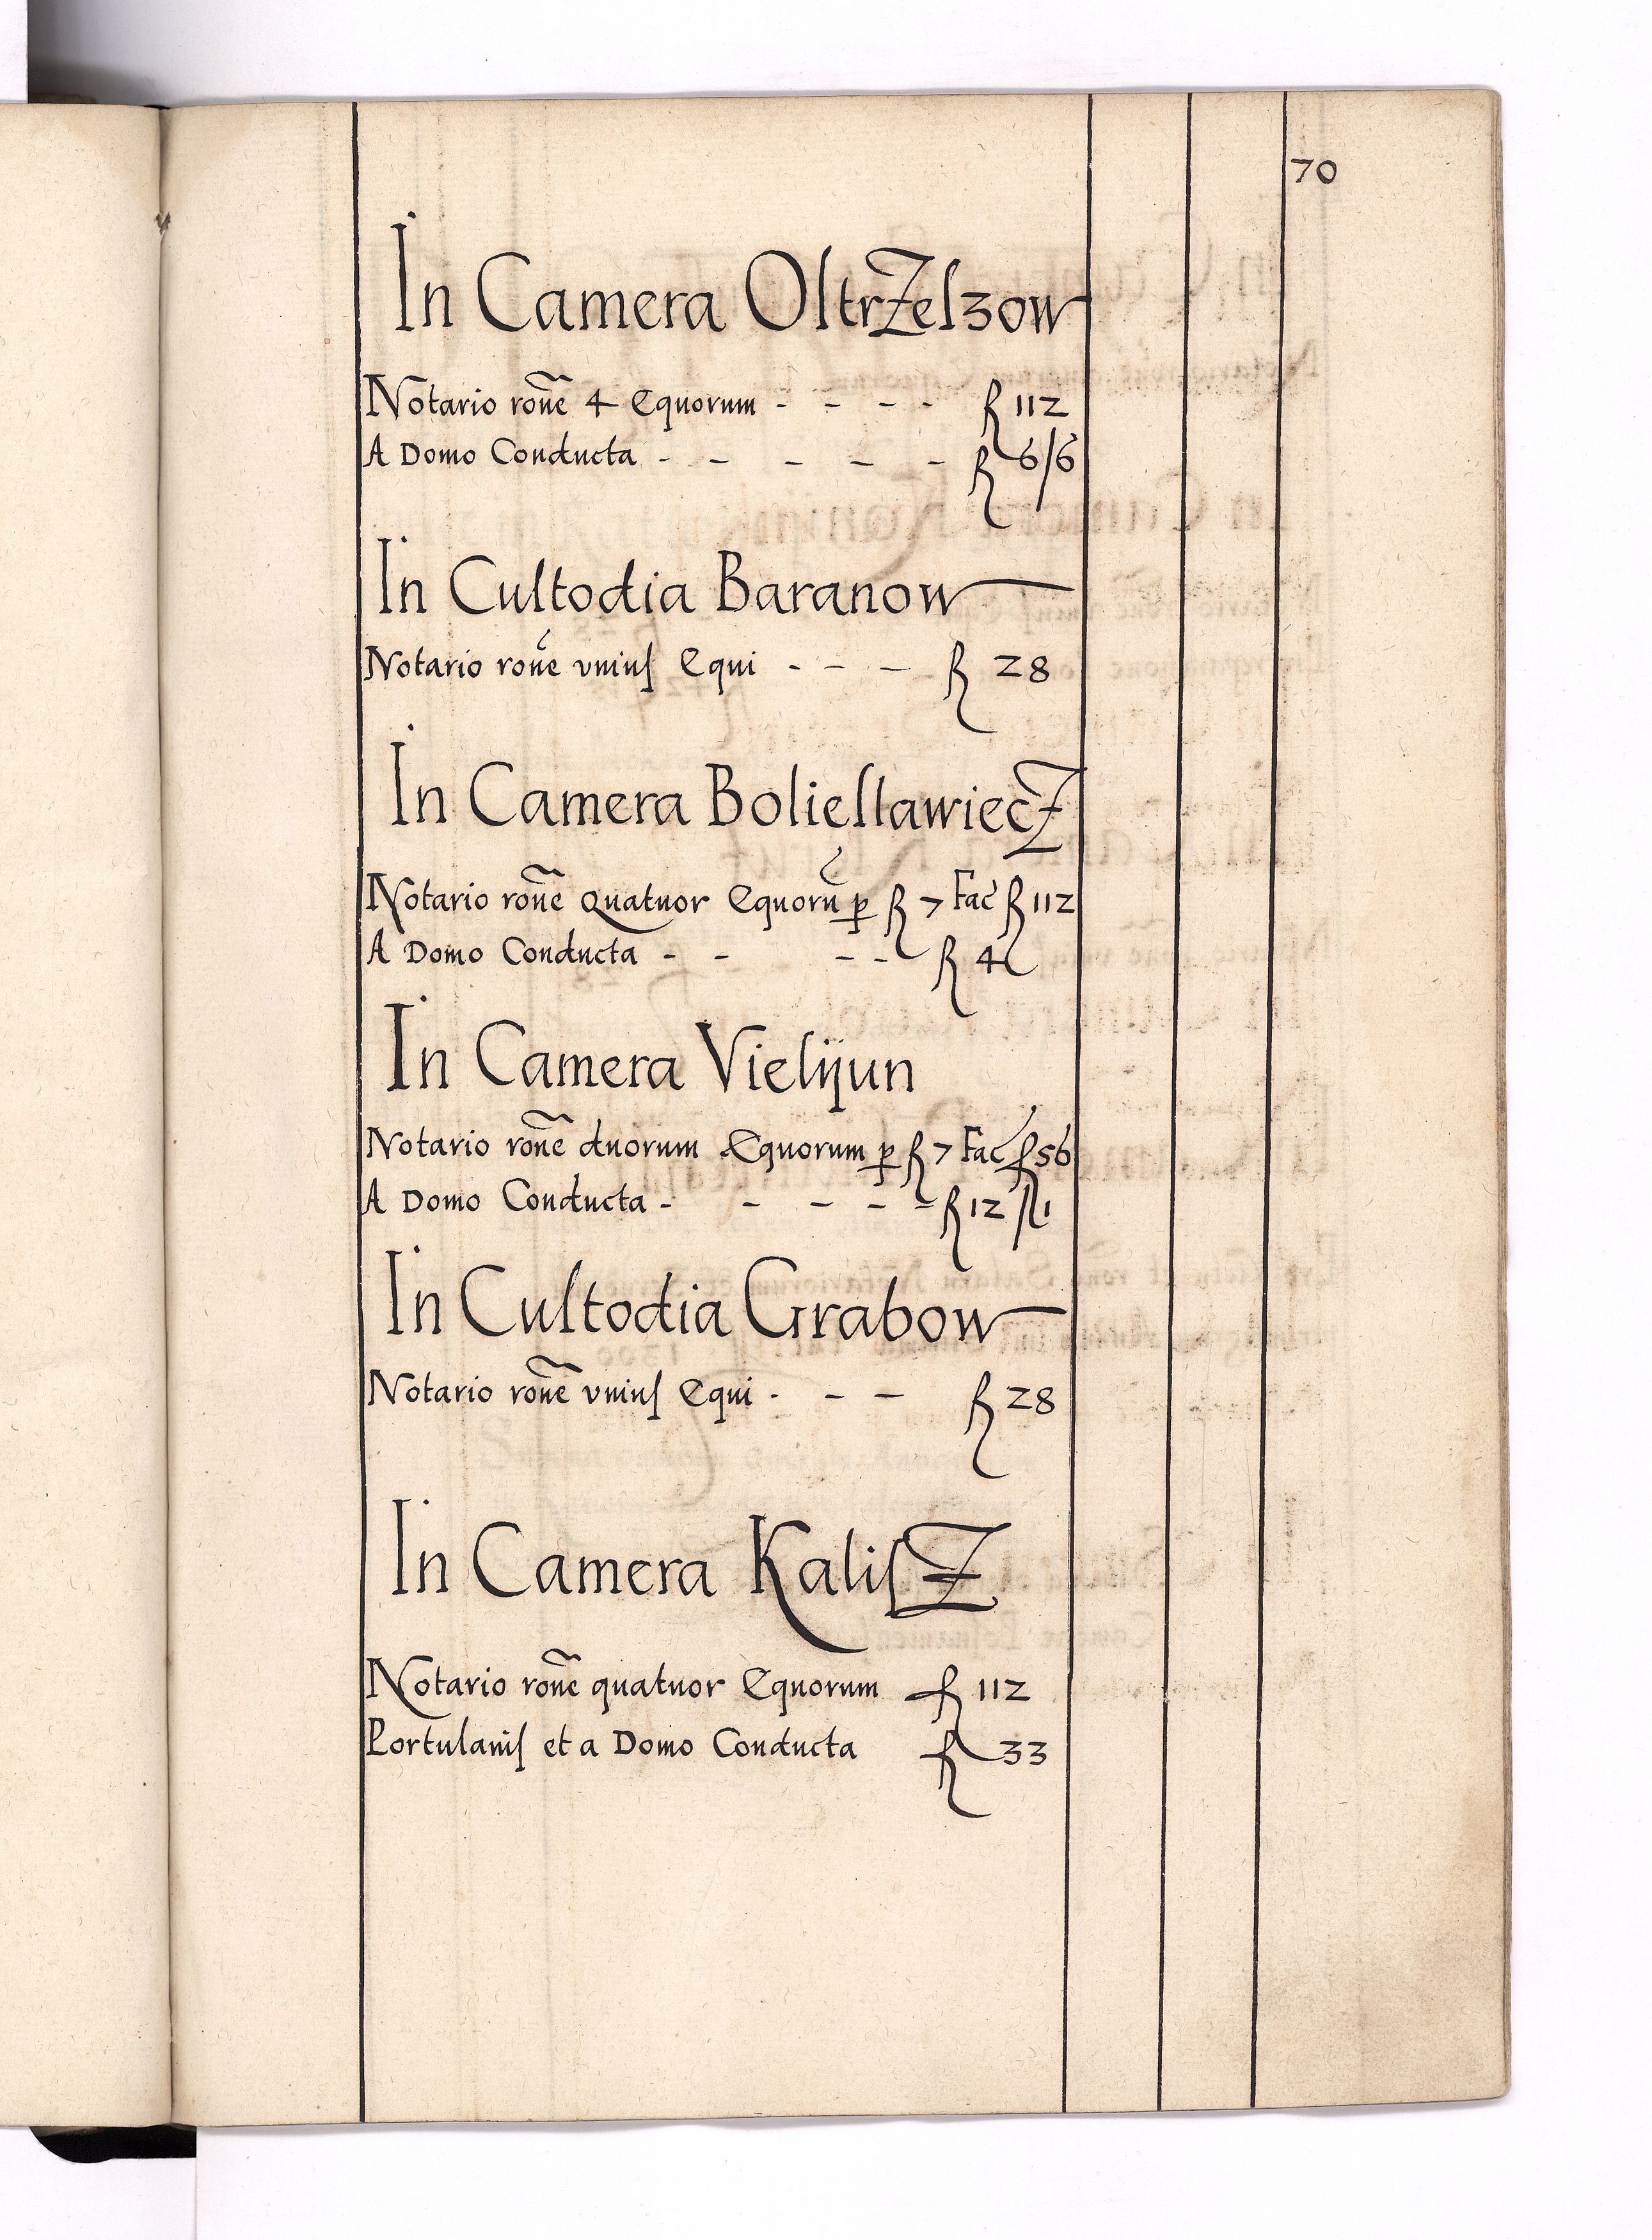 70
In Camera OſtrZeſzow
Notario rone̅ 4 Equorum - - - - fl 112
A Domo Conducta - - - - - fl 6/6
In Cuſtodia Baranow
Notario rone̅ vniuſ Equi - - - fl 28
In Camera BolieſlawiecZ
Notario rone̅ Quatuor Equoru̅ ꝑ fl 7 Fac̅ fl 112
A Domo Conducta - - - - fl 4
In Camera Vielijun
Notario rone̅ duorum Equorum ꝑ fl 7 Fac̅ fl 56
A Domo Conducta - - - - - fl 12 / 1
In Cuſtodia Grabow
Notario rone̅ vniuſ Equi - - - fl 28
In Camera KaliſZ
Notario rone̅ quatuor Equorum fl 112
Portulaniſ et a Domo Conducta fl 33